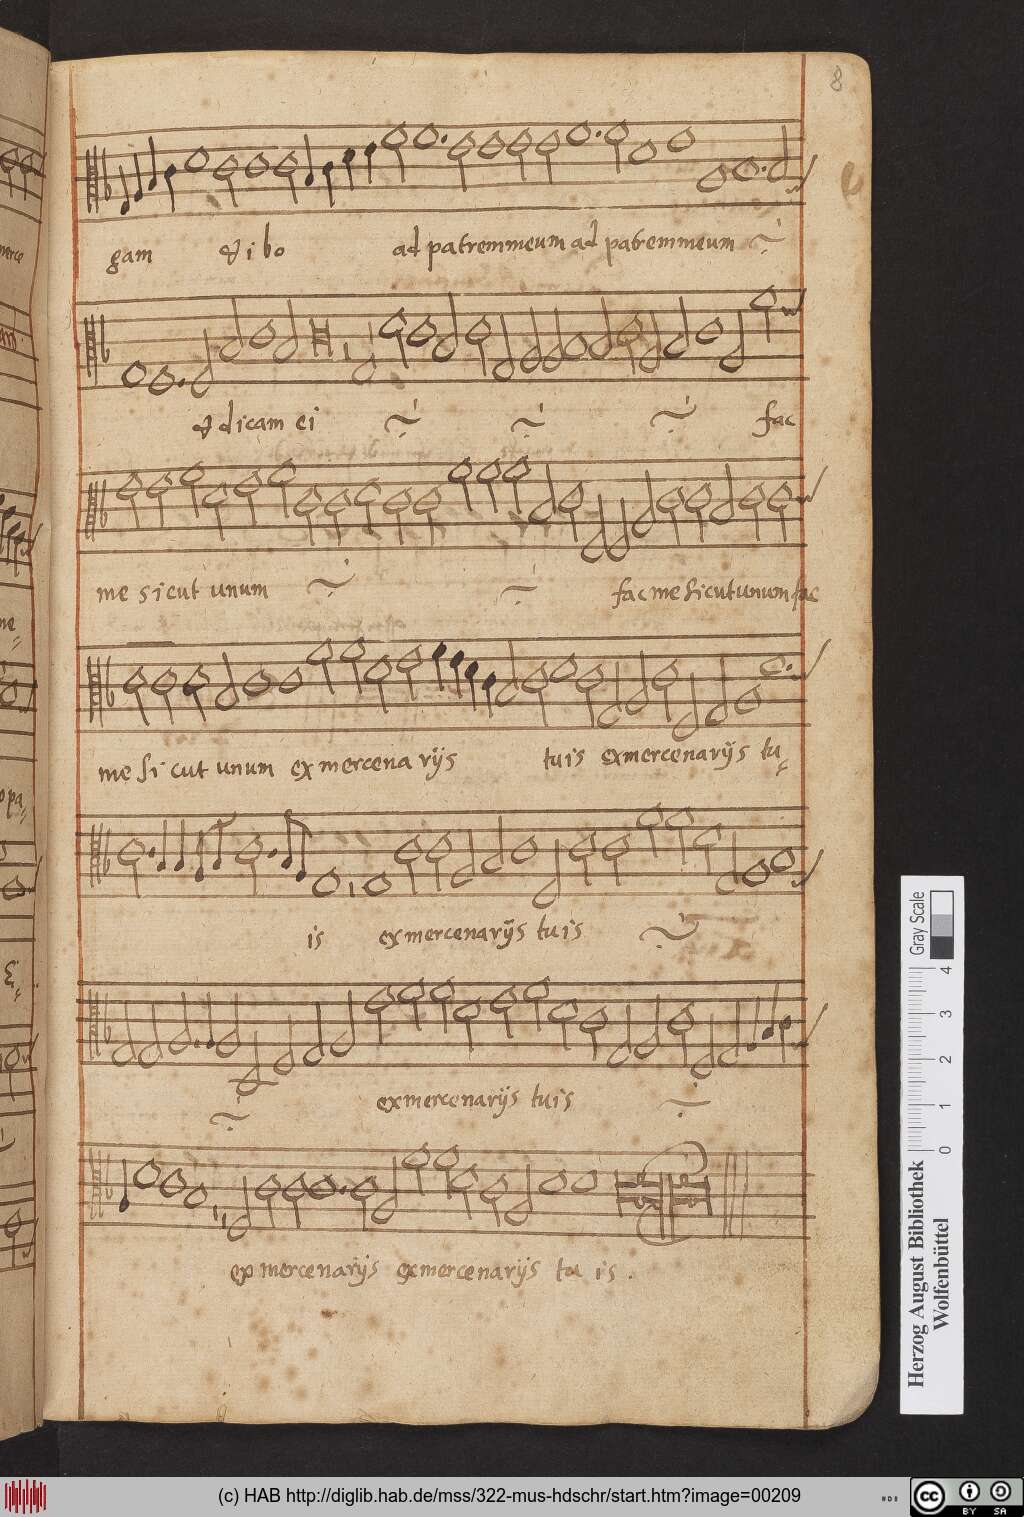 8
gam & ibo ad patrem meum ad patrem meum
& dicam ei fac
me sicut unum fac me sicut unum fac
me sicut unum ex mercenarijs tuis ex mercenarijs tu
is ex mercenarijs tuis
ex mercenarijs tuis
ex mercenarijs ex mercenarijs tu is .
Gray Scale
0 1 2 3 4
Herzog August Bibliothek
Wolfenbüttel
(c) HAB http://diglib.hab.de/mss/322-mus-hdschr/start.htm?image=00209
cc BY SA